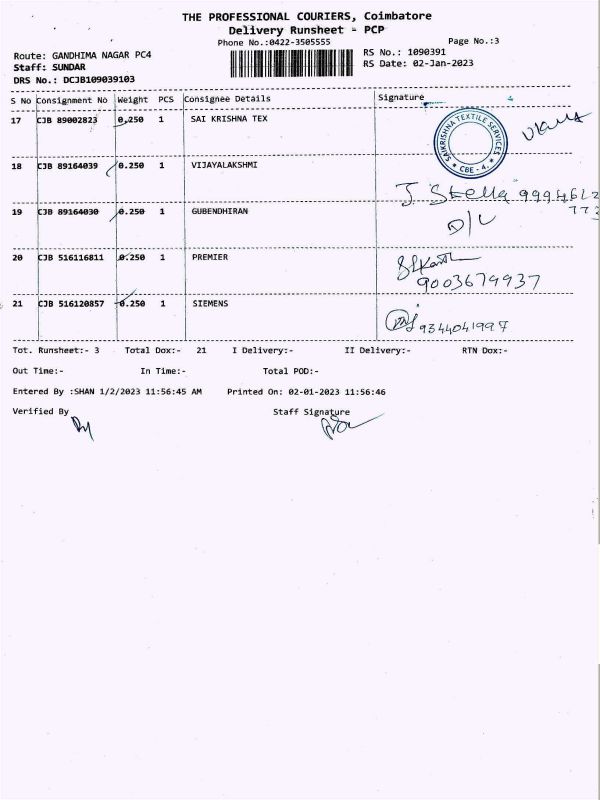 THE PROFESSIONAL COURIERS, Coimbatore
Delivery Runsheet - PCP
Phone No.:0422-3505555 Page No.:3
Route: GANDHIMA NAGAR PC4 RS No.: 1090391
Staff: SUNDAR RS Date: 02-Jan-2023
DRS No.: DCJB109039103
S No Consignment No Weight PCS Consignee Details Signature
17 CJB 89002823 0.250 1 SAI KRISHNA TEX
SAIKRISHNA TEXTILE SERVICES
★ CBE - 4. ★
18 CJB 89164039 0.250 1 VIJAYALAKSHMI
J. Stella 9994612
773
19 CJB 89164030 0.250 1 GUBENDHIRAN D/L
20 CJB 516116811 0.250 1 PREMIER
9003679937
21 CJB 516120857 0.250 1 SIEMENS
9344041997
Tot. Runsheet:- 3 Total Dox:- 21 I Delivery:- II Delivery:- RTN Dox:-
Out Time:- In Time:- Total POD:-
Entered By :SHAN 1/2/2023 11:56:45 AM Printed On: 02-01-2023 11:56:46
Verified By Staff Signature